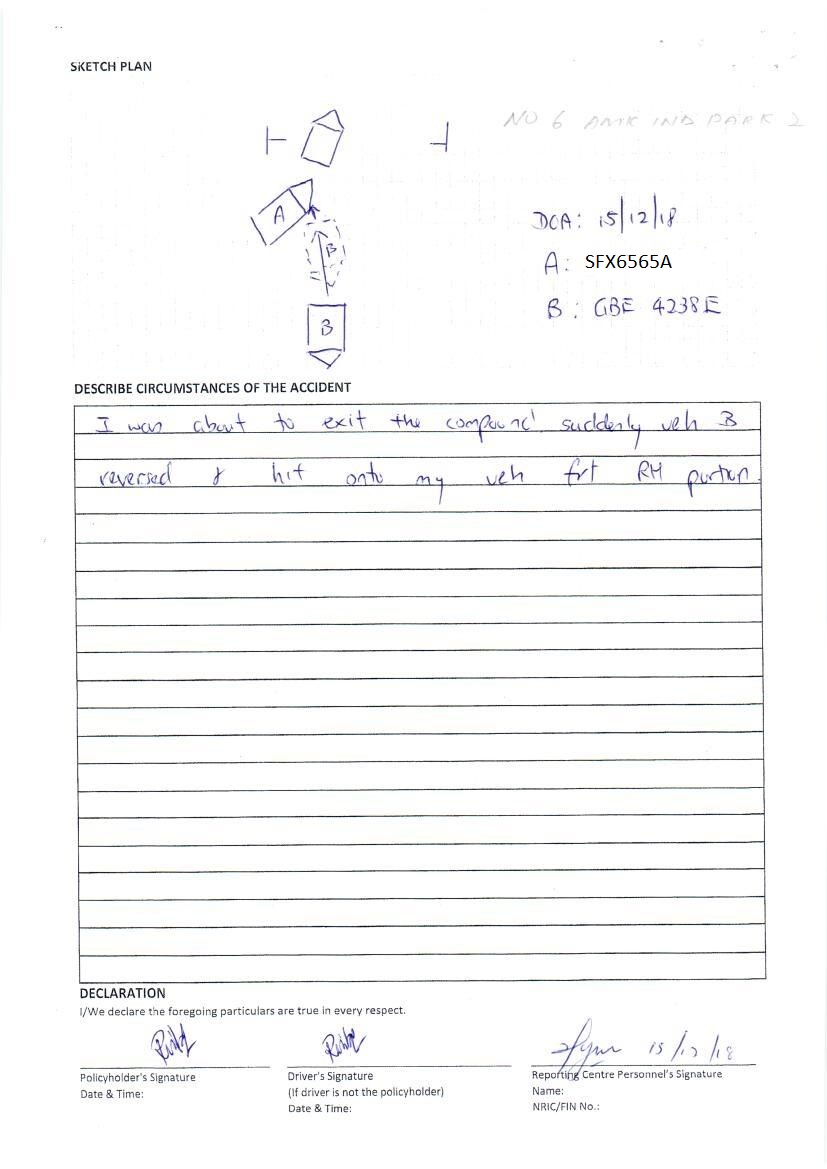 SKETCH PLAN
NO 6 AMK IND PARK 2
A
B
B
DOA: 15/12/18
A: SFX6565A
B: GBE 4238E
DESCRIBE CIRCUMSTANCES OF THE ACCIDENT
I was about to exit the compound suddenly veh B
reversed & hit onto my veh frt RH portion.
DECLARATION
I/We declare the foregoing particulars are true in every respect.
15/12/18
Policyholder's Signature
Date & Time:
Driver's Signature
(If driver is not the policyholder)
Date & Time:
Reporting Centre Personnel's Signature
Name:
NRIC/FIN No.: